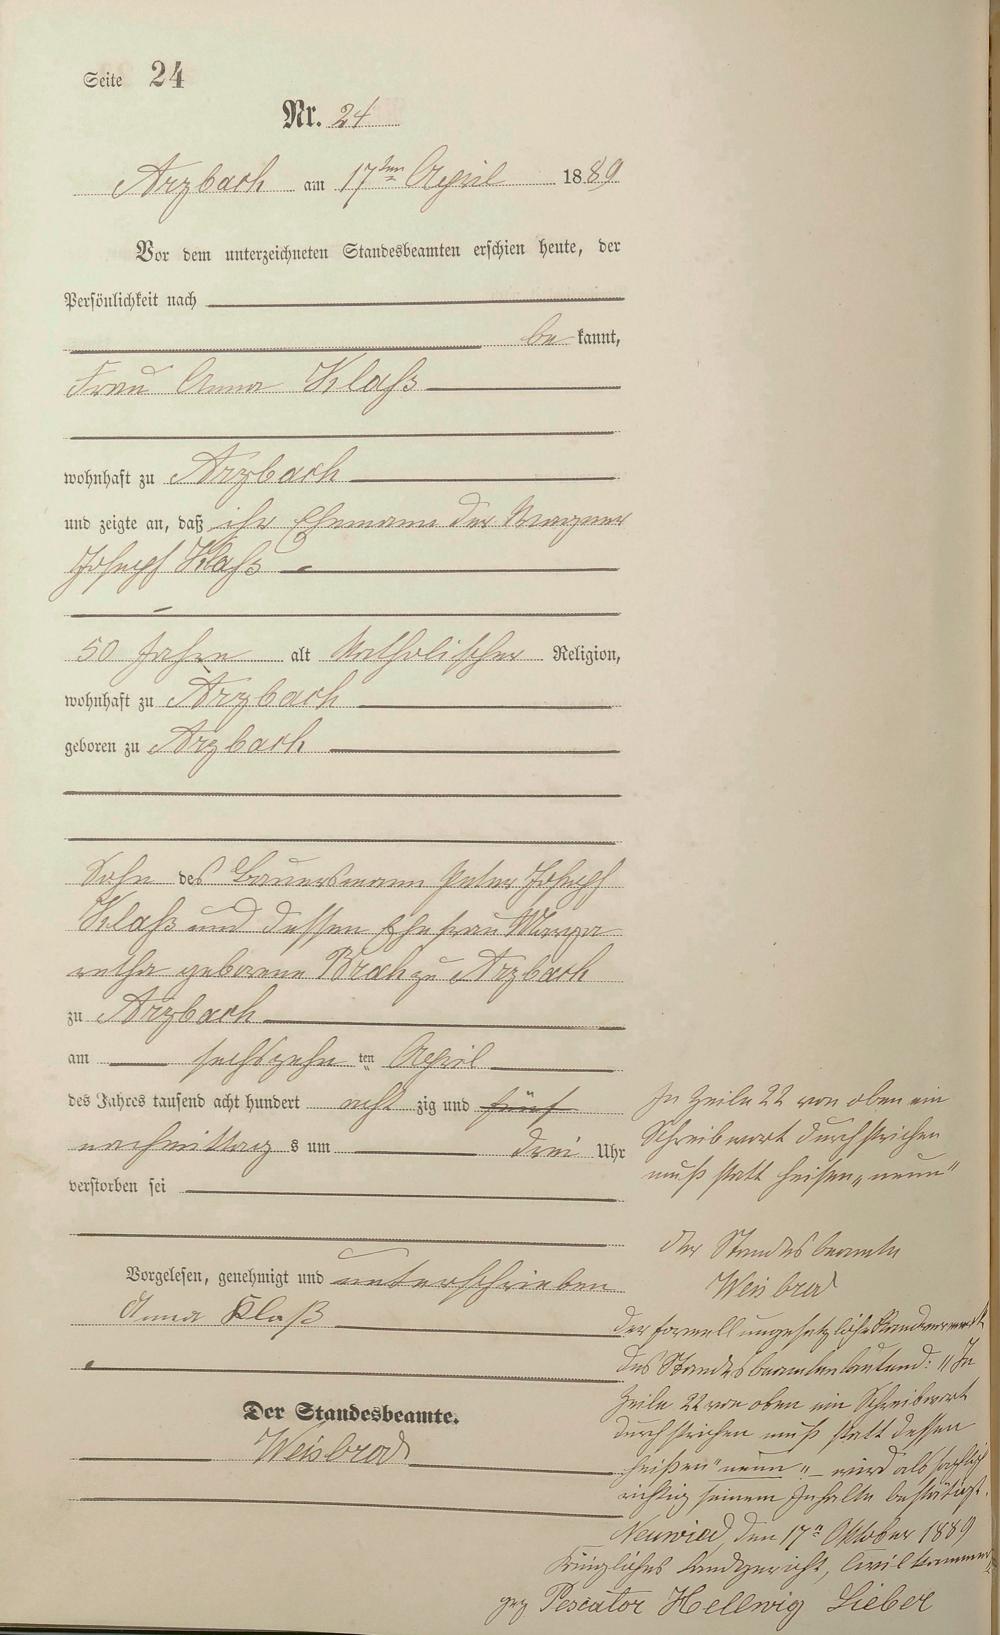 Seite 24
Nr. 24
Arzbach am 17ten April 1889
Vor dem unterzeichneten Standesbeamten erschien heute, der
Persönlichkeit nach
be kannt,
Frau Anna Klaß
wohnhaft zu Arzbach
und zeigte an, daß ihr Ehemann der Wagner
Joseph Klaß
50 Jahre alt katholischer Religion,
wohnhaft zu Arzbach
geboren zu Arzbach
Sohn des Bauersmann Peter Joseph
Klaß und dessen Ehefrau Marga
retha geborene Brah zu Arzbach
zu Arzbach
am sechszehn ten April
des Jahres tausend acht hundert acht zig und fünf
nachmittag s um drei Uhr
verstorben sei
Vorgelesen, genehmigt und unterschrieben
Anna Klaß
Der Standesbeamte.
Weisbrod
In Zeile 22 von oben ein
Schreibwort durchstrichen
muß statt heißen „neun"
Der Standesbeamte
Weisbrod
Der formell ungesetzliche Randvermerk
des Standesbeamten lautend: "In
Zeile 22 von oben ein Schreibwort
durchstrichen muß statt dessen
heißen "neun" – wird als sachlich
richtig seinem Inhalte bestätigt.
Neuwied, den 17n Oktober 1889
Königliches Landgericht, Civilkammer
gez Pescator Hellwig Lieber